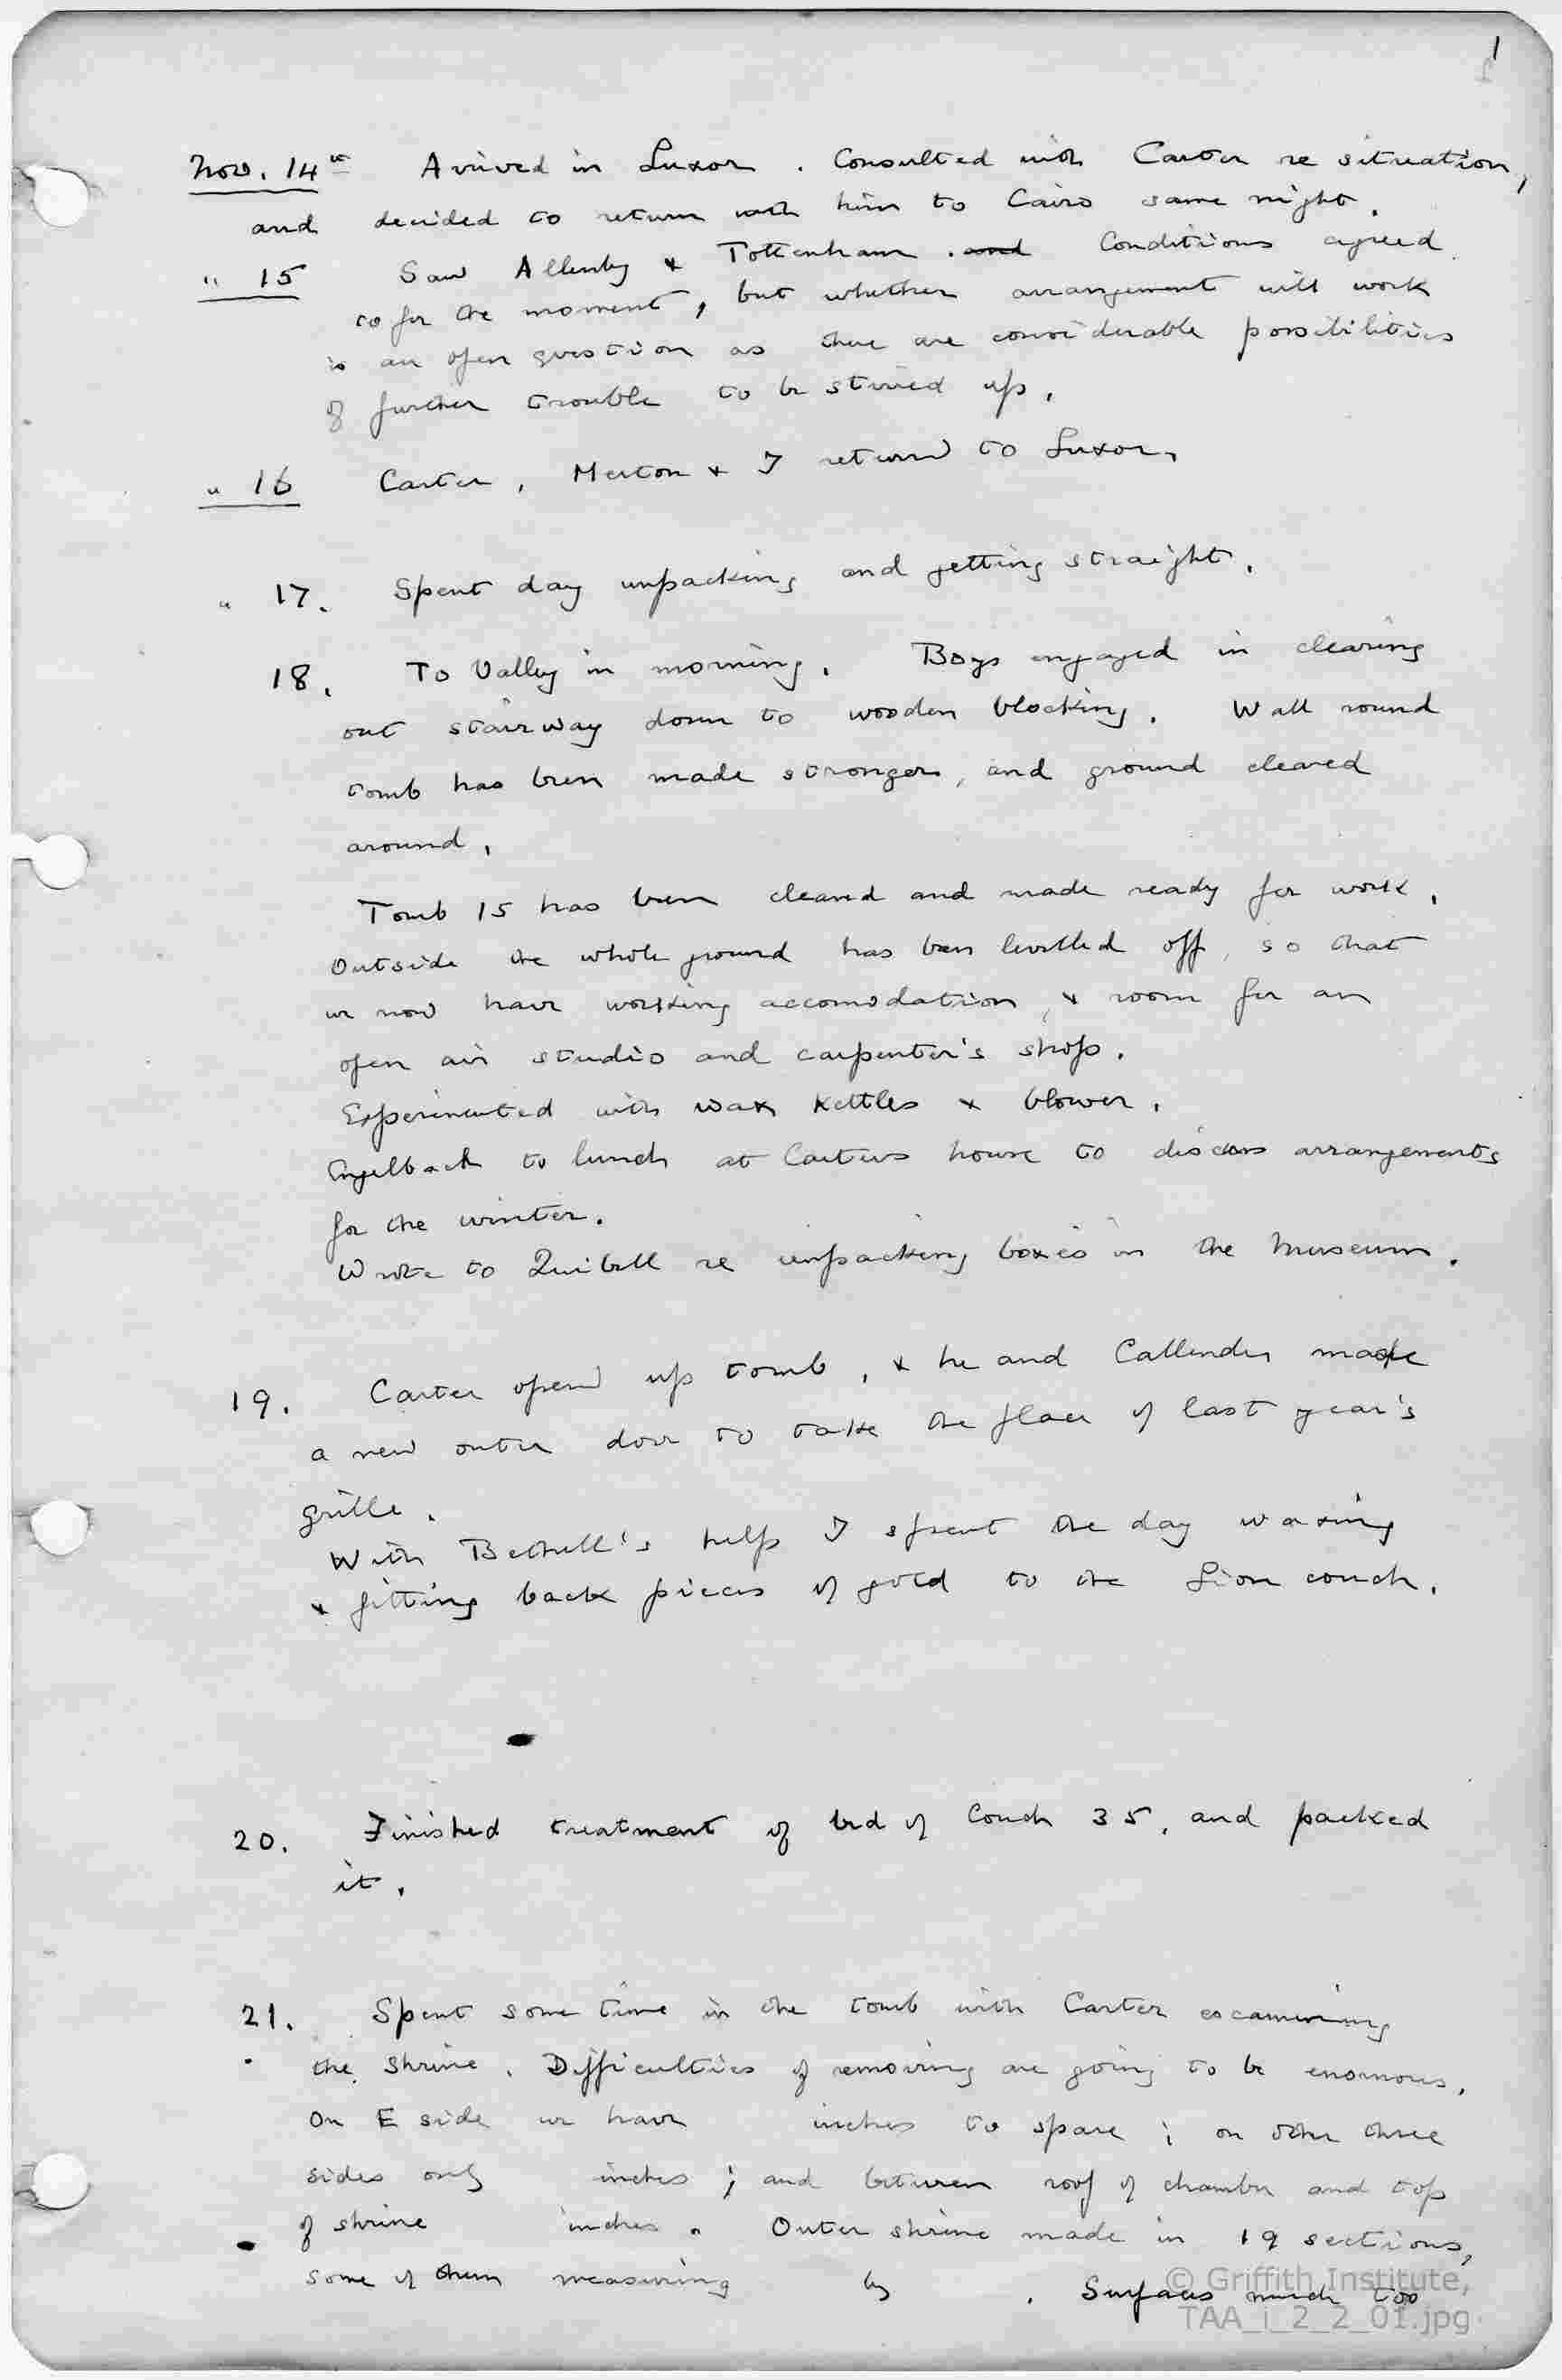 1
Nov. 14th Arrived in Luxor. Consulted with Carter re situation,
and decided to return with him to Cairo same night.
" 15 Saw Allenby & Tottenham. and Conditions agreed
to for the moment, but whether arrangement will work
is an open question as there are considerable possibilities
of further trouble to be stirred up.
" 16 Carter, Merton & I return to Luxor.
" 17. Spent day unpacking and getting straight.
18. To Valley in morning. Boys engaged in clearing
out stairway down to wooden blocking. Wall round
tomb has been made stronger, and ground cleared
around.
Tomb 15 has been cleared and made ready for work.
Outside the whole ground has been levelled off, so that
we now have working accomodation, & room for an
open air studio and carpenter's shop.
Experimented with wax kettles & blower.
Engelbach to lunch at Carters house to discuss arrangements
for the winter.
Wrote to Quibell re unpacking boxes in the Museum.
19. Carter opened up tomb, & he and Callender made
a new outer door to take the place of last year's
grille.
With Bethell's help I spent the day waxing
& fitting back pieces of gold to the Lion couch.
20. Finished treatment of bed of Couch 35, and packed
it.
21. Spent some time in the tomb with Carter examining
the shrine. Difficulties of removing are going to be enormous.
On E side we have inches to spare; on other three
sides only inches; and between roof of chamber and top
of shrine inches. Outer shrine made in 19 sections,
some of them measuring by . Surfaces much too
© Griffith Institute,
TAA_i_2_2_01.jpg